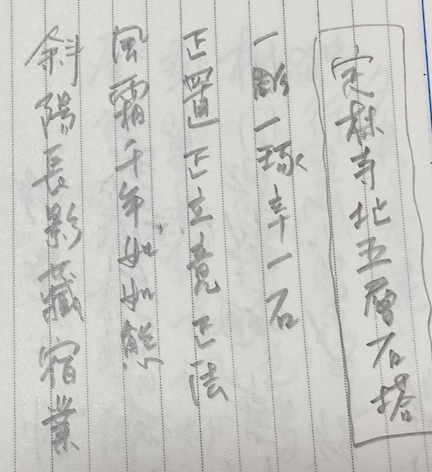 定林寺址五層石塔
一彫一琢幸一石
正置正立竟正法
風霜千年如如態
斜陽長影藏宿業